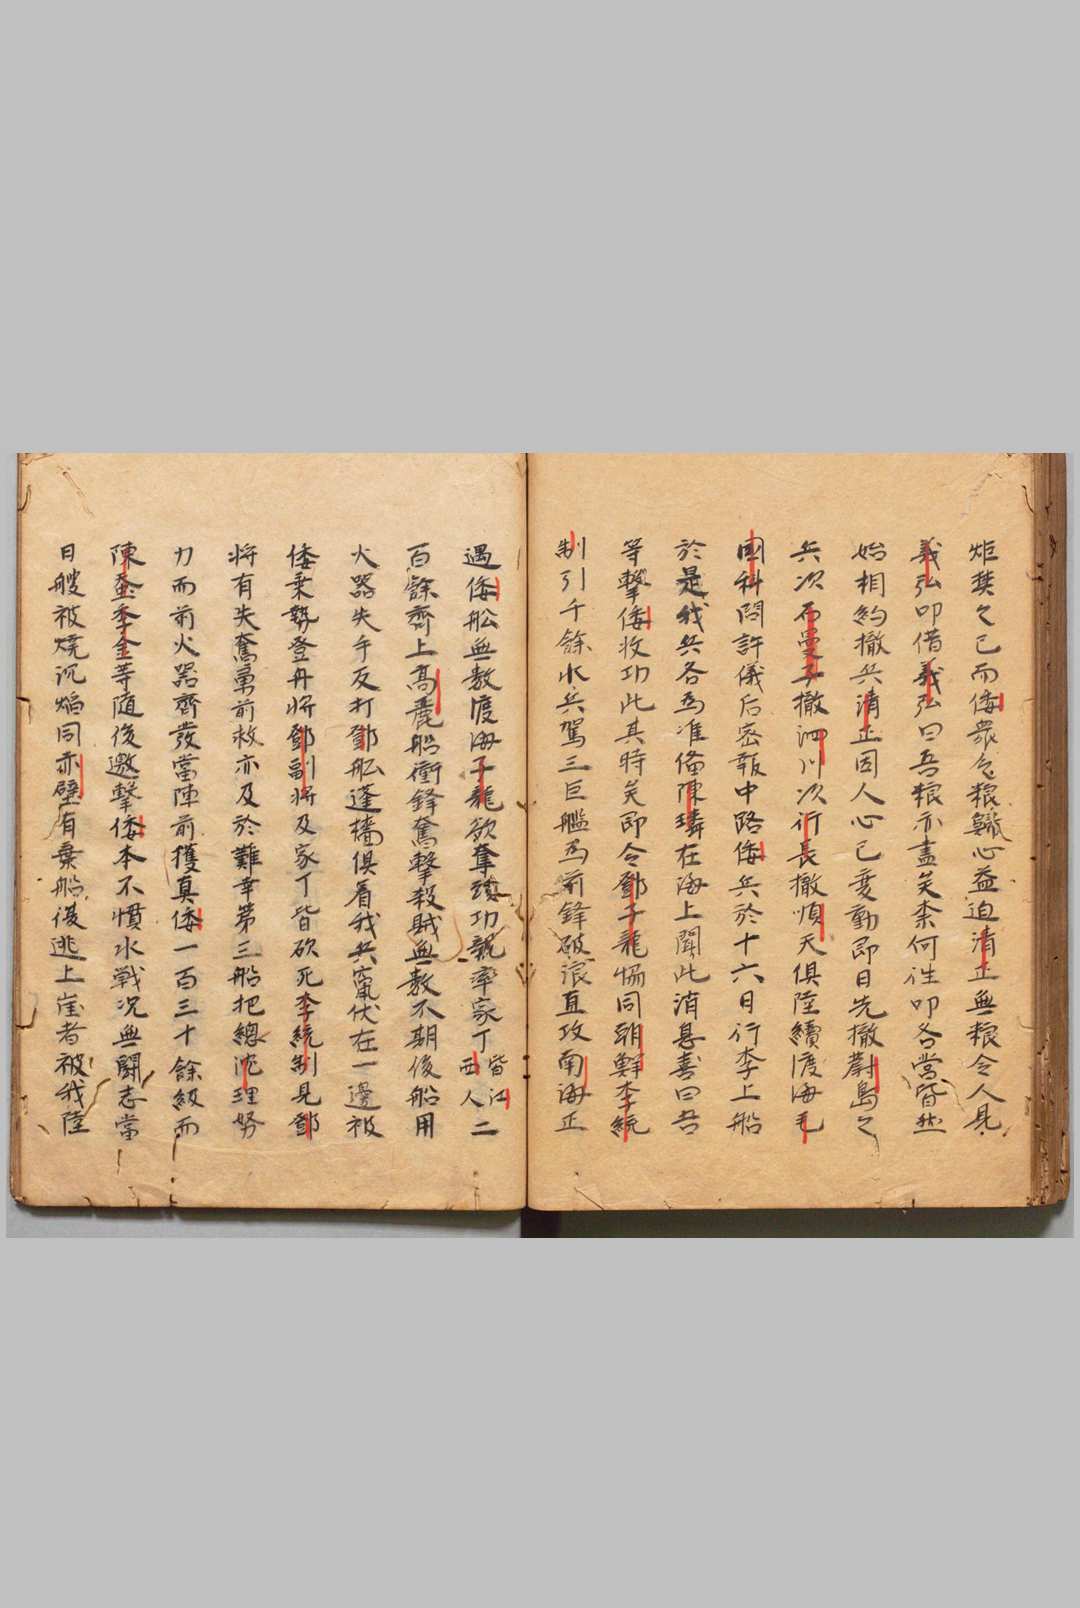 炬焚之已而倭衆乞粮鱵心益迫清正無粮令人見
義弘叩借義弘曰吾粮亦盡矣柰何往叩各営皆然
始相約撤兵清正因人心已變動即日先撤蔚島之
兵次石曼子撤泗川次行長撤順天俱陸續渡海毛
國科問許儀后密報中路倭兵於十六日行李上船
於是我兵各為准備陳璘在海上聞此消息喜曰吾
等擊倭收功此其時矣即令鄧子龍恊同朝鮮李統
制引千餘水兵駕三巨艦為前鋒破浪直攻南海正
遇倭舩無数渡海子龍欲奪頭功親率家丁皆江西人二
百餘齊上高麗船衝鋒奮擊殺賊無数不期後船用
火器失手反打鄧舩蓬檣俱着我兵竄伏在一邊被
倭乗勢登舟将鄧副将及家丁皆砍死李統制見鄧
将有失奮勇前救亦及於難幸第三船把總沈理努
力而前火器齊發當陣前獲真倭一百三十餘級而
陳蚕季金等随後邀擊倭本不慣水戦况無鬪志當
日艘被焼沉焰同赤壁有棄船後逃上崖者被我陸